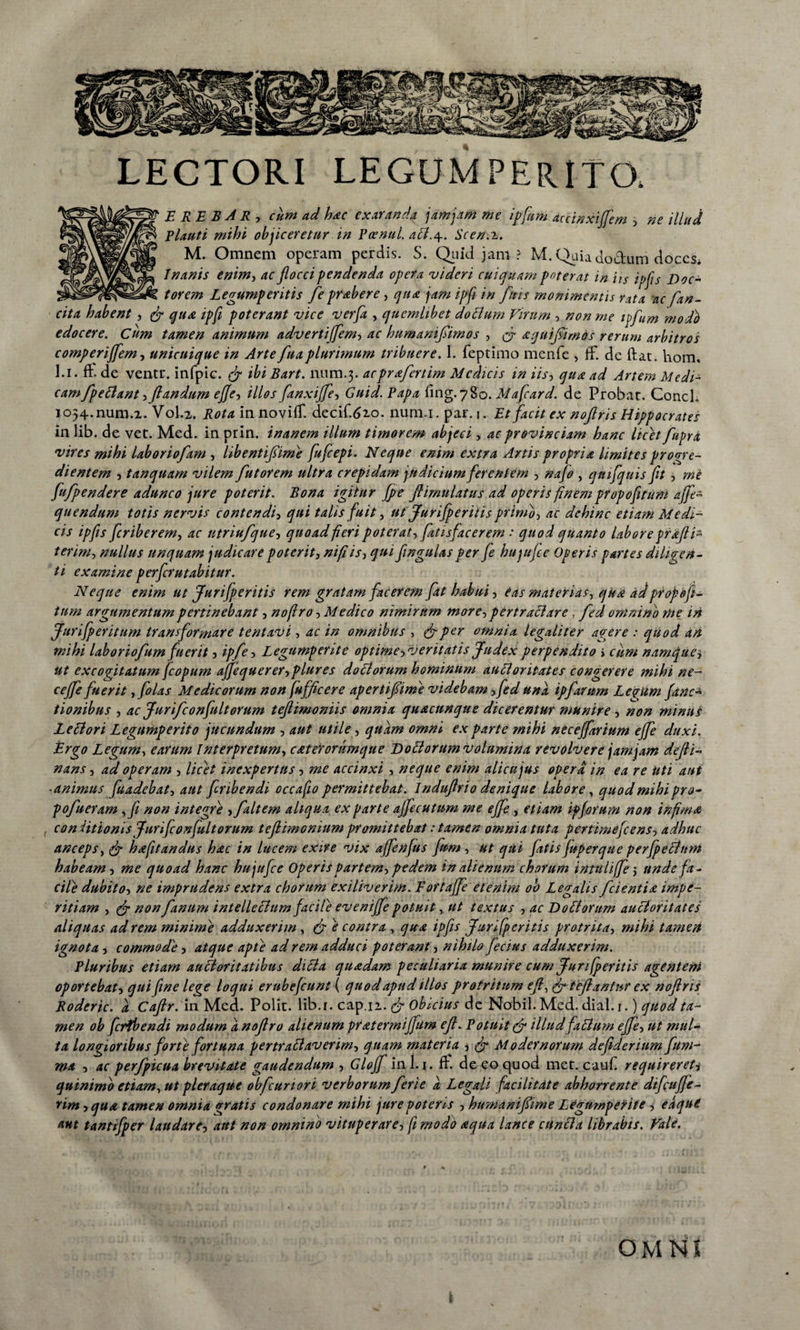 LECTORI LEGUMPERITO.
VEREBAR, cùm ad hæc exaranda jamjam me ipsum accinxissem, ne illud
Plauti mihi objiceretur in Pœnul. act.4. Scen.2.
M. Omnem operam perdis. S. Quid jam? M. Quia doctum doces.
Inanis enim, ac floccipendenda opera videri cuiquam poterat in iis ipsis Doc-
torem Legumperitis se præbere, quæ jam ipsi in suis monimentis rata ac san-
cita habent, & quæ ipsi poterant vice versa, quemlibet doctum Virum, non me ipsum modò
edocere. Cùm tamen animum advertissem, ac humanissimos, & æquissimos rerum arbitros
comperissem, unicuique in Arte sua plurimum tribuere. l. septimo mense, ff. de stat. hom.
l.1. ff. de ventr. inspic. & ibi Bart. num.3. ac præsertim Medicis in iis, quæ ad Artem Medi-
cam spectant, standum esse, illos sanxisse, Guid. Papa sing.780. Mascard. de Probat. Concl.
1034.num.2. Vol.2. Rota in noviss. decis.620. num.1. par.1. Et facit ex nostris Hippocrates
in lib. de vet. Med. in prin. inanem illum timorem abjeci, ac provinciam hanc licèt supra
vires mihi laboriosam, libentissimè suscepi. Neque enim extra Artis propriæ limites progre-
dientem, tanquam vilem sutorem ultra crepidam judicium ferentem, naso, quisquis sit, me
suspendere adunco jure poterit. Bona igitur spe stimulatus ad operis finem propositum asse-
quendum totis nervis contendi, qui talis fuit, ut Jurisperitis primò, ac dehinc etiam Medi-
cis ipsis scriberem, ac utriusque, quoad fieri poterat, satisfacerem: quod quanto labore præsti-
terim, nullus unquam judicare poterit, nisi is, qui singulas per se hujusce Operis partes diligen-
ti examine perscrutabitur.
Neque enim ut Jurisperitis rem gratam facerem sat habui, eas materias, quæ ad proposi-
tum argumentum pertinebant, nostro, Medico nimirum more, pertractare, sed omnino me in
Jurisperitum transformare tentavi, ac in omnibus, & per omnia legaliter agere: quod an
mihi laboriosum fuerit, ipse, Legumperite optime, veritatis Judex perpendito; cùm namque,
ut excogitatum scopum assequerer, plures doctorum hominum auctoritates congerere mihi ne-
cesse fuerit, solas Medicorum non sufficere apertissimè videbam, sed unà ipsarum Legum sanc-
tionibus, ac Jurisconsultorum testimoniis omnia quacunque dicerentur munire, non minus
Lectori Legumperito jucundum, aut utile, quàm omni ex parte mihi necessarium esse duxi.
Ergo Legum, earum Interpretum, cæterorúmque Doctorum volumina revolvere jamjam desti-
nans, ad operam, licèt inexpertus, me accinxi, neque enim alicujus operâ in ea re uti aut
animus suadebat, aut scribendi occasio permittebat. Industrio denique labore, quod mihi pro-
posueram, si non integrè, saltem aliqua ex parte assecutum me esse, etiam ipsorum non infimæ
conditionis Jurisconsultorum testimonium promittebat: tamen omnia tuta pertimescens, adhuc
anceps, & hæsitandus hæc in lucem exire vix assensus sum, ut qui satis superque perspectum
habeam, me quoad hanc hujusce Operis partem, pedem in alienum chorum intulisse; unde fa-
cilè dubito, ne imprudens extra chorum exiliverim. Fortasse etenim ob Legalis scientiæ impe-
ritiam, & non sanum intellectum facilè evenisse potuit, ut textus, ac Doctorum auctoritates
aliquas ad rem minimè adduxerim, & è contra, quæ ipsis Jurisperitis protrita, mihi tamen
ignota, commodè, atque aptè ad rem adduci poterant, nihilo secius adduxerim.
Pluribus etiam auctoritatibus dicta quædam peculiaria munire cum Jurisperitis agentem
oportebat, qui sine lege loqui erubescunt (quod apud illos protritum est, & testantur ex nostris
Roderic. à Castr. in Med. Polit. lib.1. cap.12. & Obicius de Nobil. Med. dial.1.) quod ta-
men ob scribendi modum à nostro alienum prætermissum est. Potuit & illud factum esse, ut mul-
ta longioribus forte fortuna pertractaverim, quam materia, & Modernorum desiderium sum-
ma, ac perspicua brevitate gaudendum, Gloss. in l.1. ff. de eo quod met. caus. requireret;
quinimò etiam, ut pleraque obscuriori verborum serie à Legali facilitate abhorrente discusse-
rim, quæ tamen omnia gratis condonare mihi jure poteris, humanissime Legumperite, eáque
aut tantisper laudare, aut non omnino vituperare, si modò æqua lance cuncta librabis. Vale.
OMNI